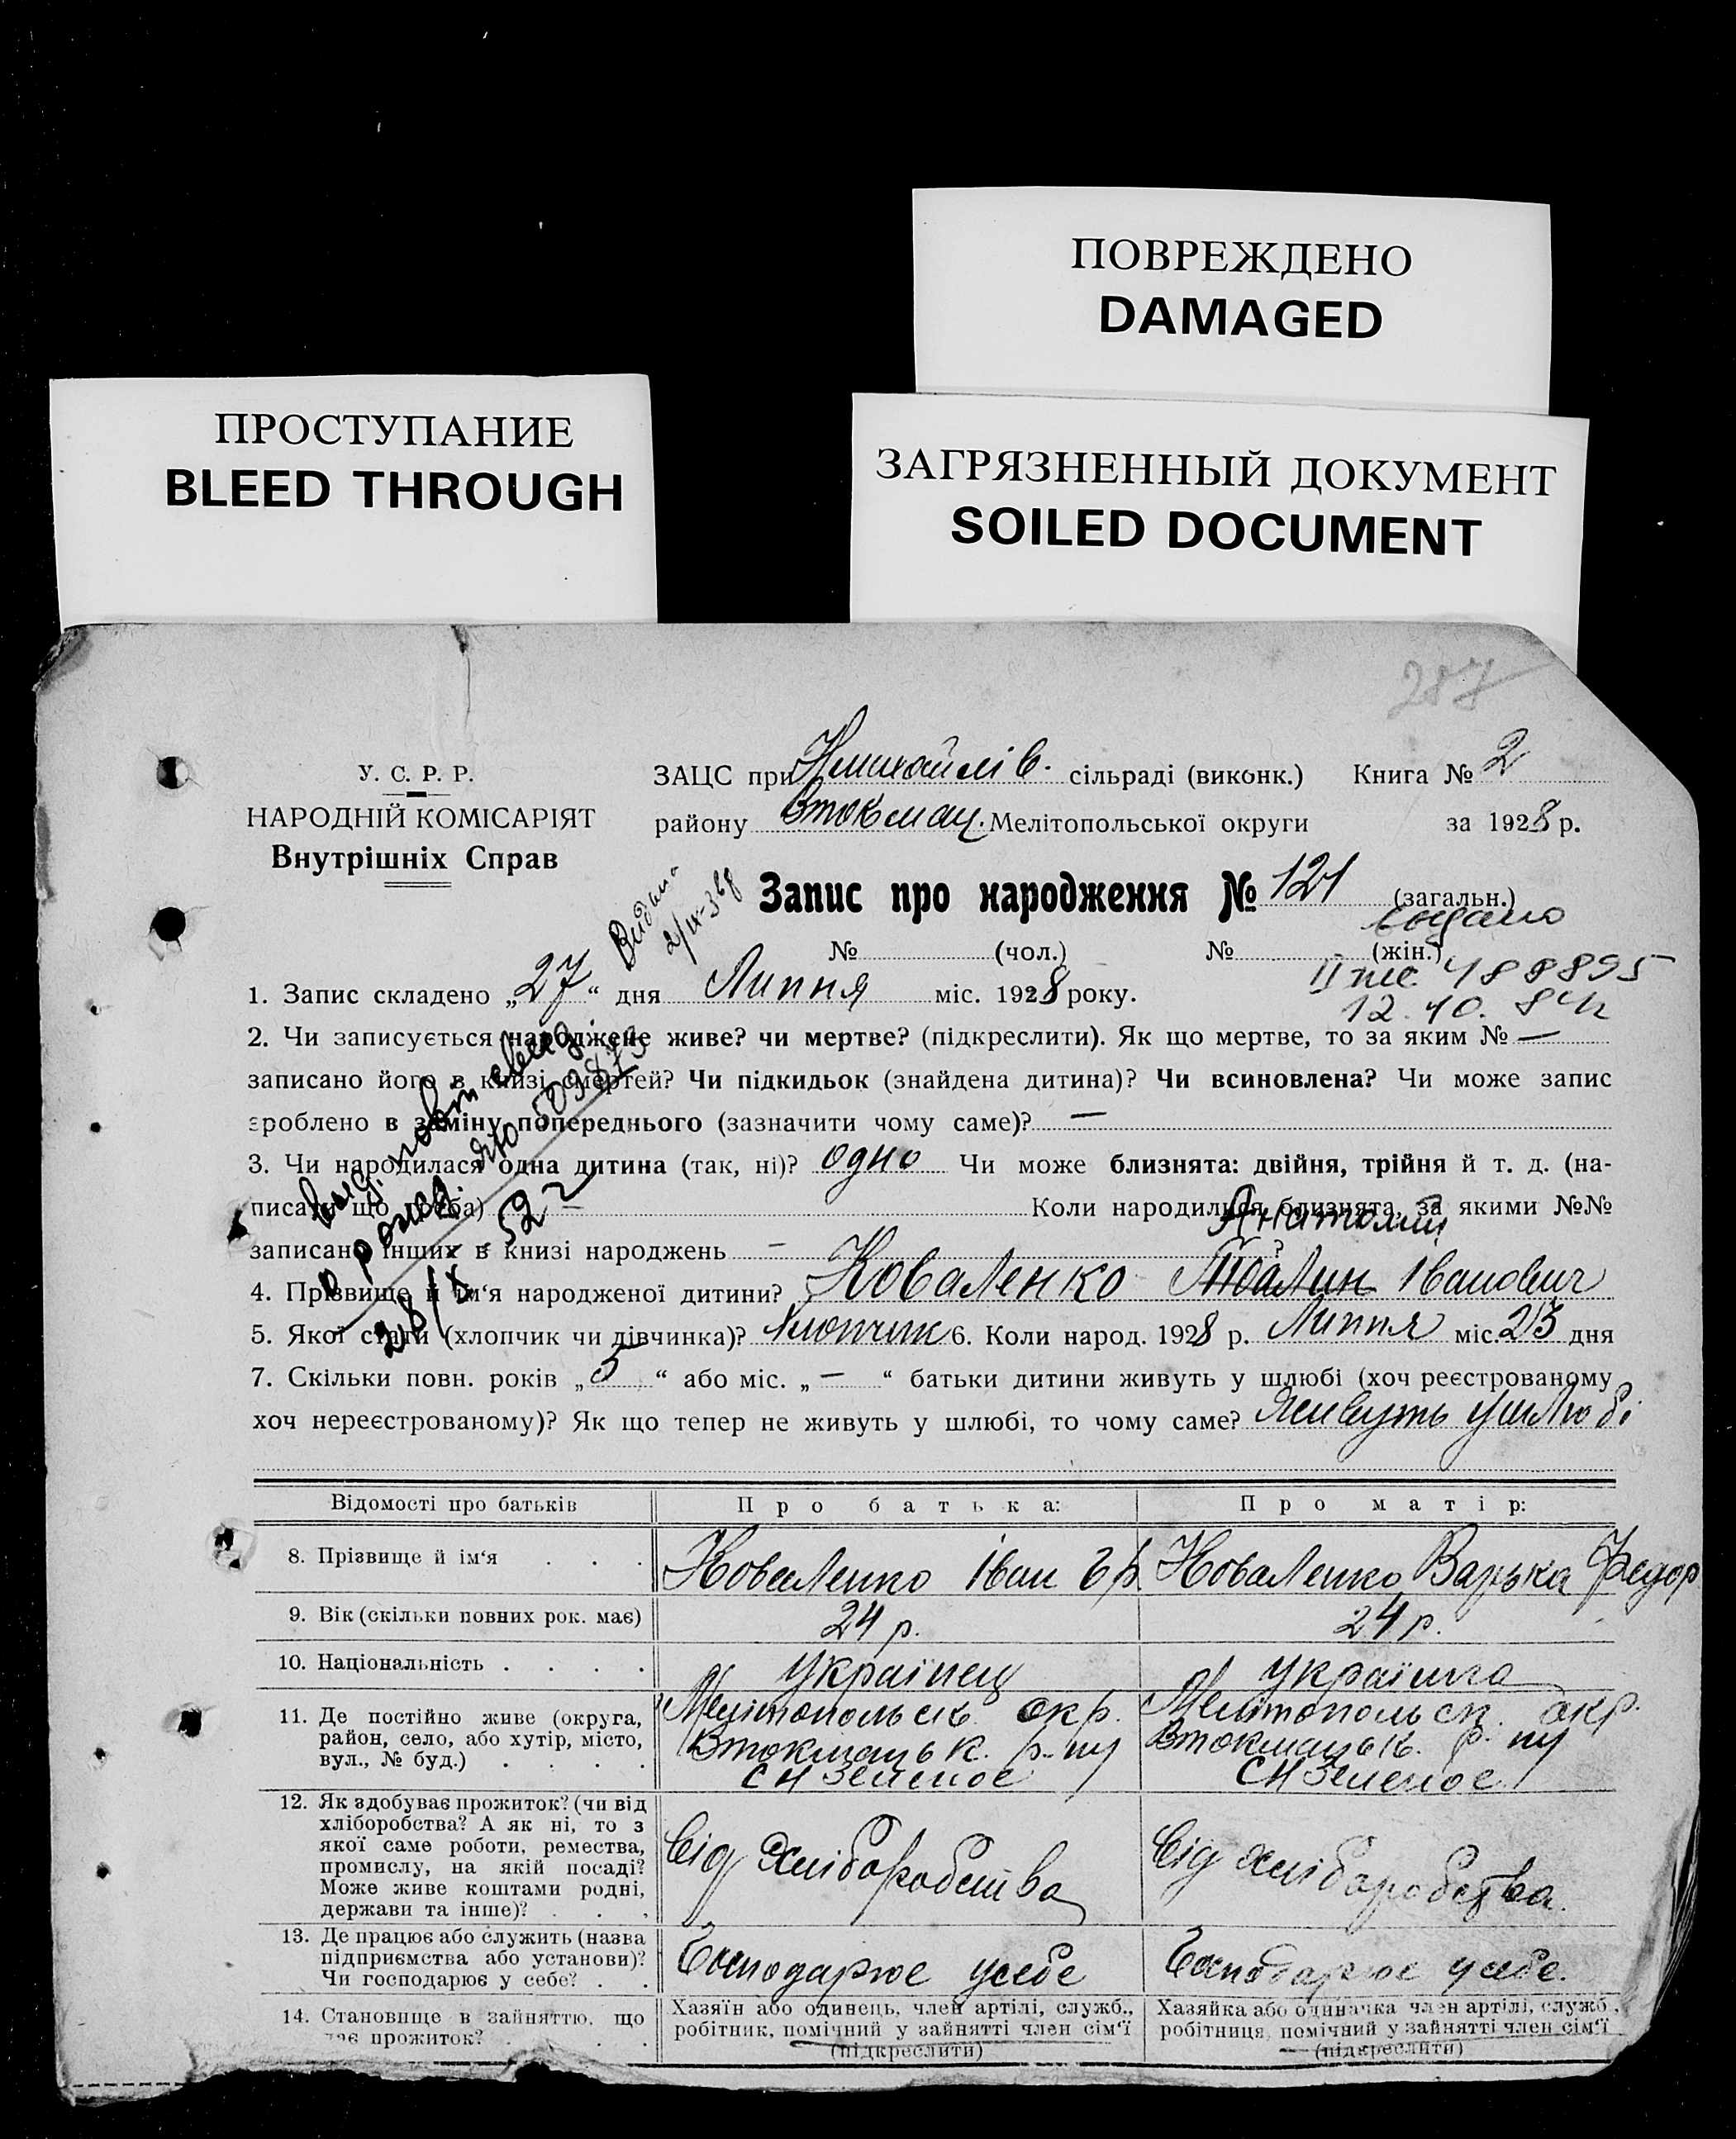 ПОВРЕЖДЕНО
DAMAGED
ПРОСТУПАНИЕ
BLEED THROUGH
ЗАГРЯЗНЕННЫЙ ДОКУМЕНТ
SOILED DOCUMENT
287
У. С. Р. Р.
НАРОДНІЙ КОМІСАРІЯТ
Внутрішніх Справ
ЗАЦС при Нмихайлів. сільраді (виконк.) Книга № 2
району Втокмац. Мелітопольської округи за 1928 р.
Видана
2/IX-36р
Запис про народження № 121 (загальн.)
видано
№ (чол.) № (жін.)
488895
12.10.84
1. Запис складено „27“ дня Липня міс. 1928 року.
2. Чи записується народжене живе? чи мертве? (підкреслити). Як що мертве, то за яким № —
записано його в книзі смертей? Чи підкидьок (знайдена дитина)? Чи всиновлена? Чи може запис
зроблено в заміну попереднього (зазначити чому саме)? —
3. Чи народилася одна дитина (так, ні)? одно Чи може близнята: двійня, трійня й т. д. (на-
писати що треба) — Коли народилися близнята, за якими №№
записано інших в книзі народжень — ?
Анатолий
4. Прізвище й ім‘я народженої дитини? Коваленко Іванович
5. Якої статі (хлопчик чи дівчинка)? Хлопчик 6. Коли народ. 1928 р. Липня міс. 23 дня
7. Скільки повн. років „5“ або міс. „—“ батьки дитини живуть у шлюбі (хоч реєстрованому
хоч нереєстрованому)? Як що тепер не живуть у шлюбі, то чому саме? Живуть ушлюбі
выд. повт. свид.
о рожд.
28/X - 52 г
Відомості про батьків Про батька: Про матір:
8. Прізвище й ім‘я . . . Коваленко Іван Коваленко Варька Федор
9. Вік (скільки повних рок. має) 24 р. 24 р.
10. Національність . . . . Українец Українка
11. Де постійно живе (округа,
район, село, або хутір, місто,
вул., № буд.) . . . .
Мелітопольск. окр.
Втокмацьк. р-ну
СНЗеленое
Мелітопольск. окр.
Втокмацьк. р-ну
СНЗеленое
12. Як здобуває прожиток? (чи від
хліборобства? А як ні, то з
якої саме роботи, ремества,
промислу, на якій посаді?
Може живе коштами родні,
держави та інше)? . . .
Від Хліборобства
Від хліборобства.
13. Де працює або служить (назва
підприємства або установи)?
Чи господарює у себе? . .
Господарює усебе
Господарює усебе.
14. Становище в зайняттю, що
дає прожиток? . . .
Хазяїн або одинець, член артілі, служб.,
робітник, помічний у зайнятті член сім‘ї
(підкреслити)
Хазяйка або одиначка член артілі, служб.,
робітниця, помічний у зайнятті член сім‘ї
(підкреслити)